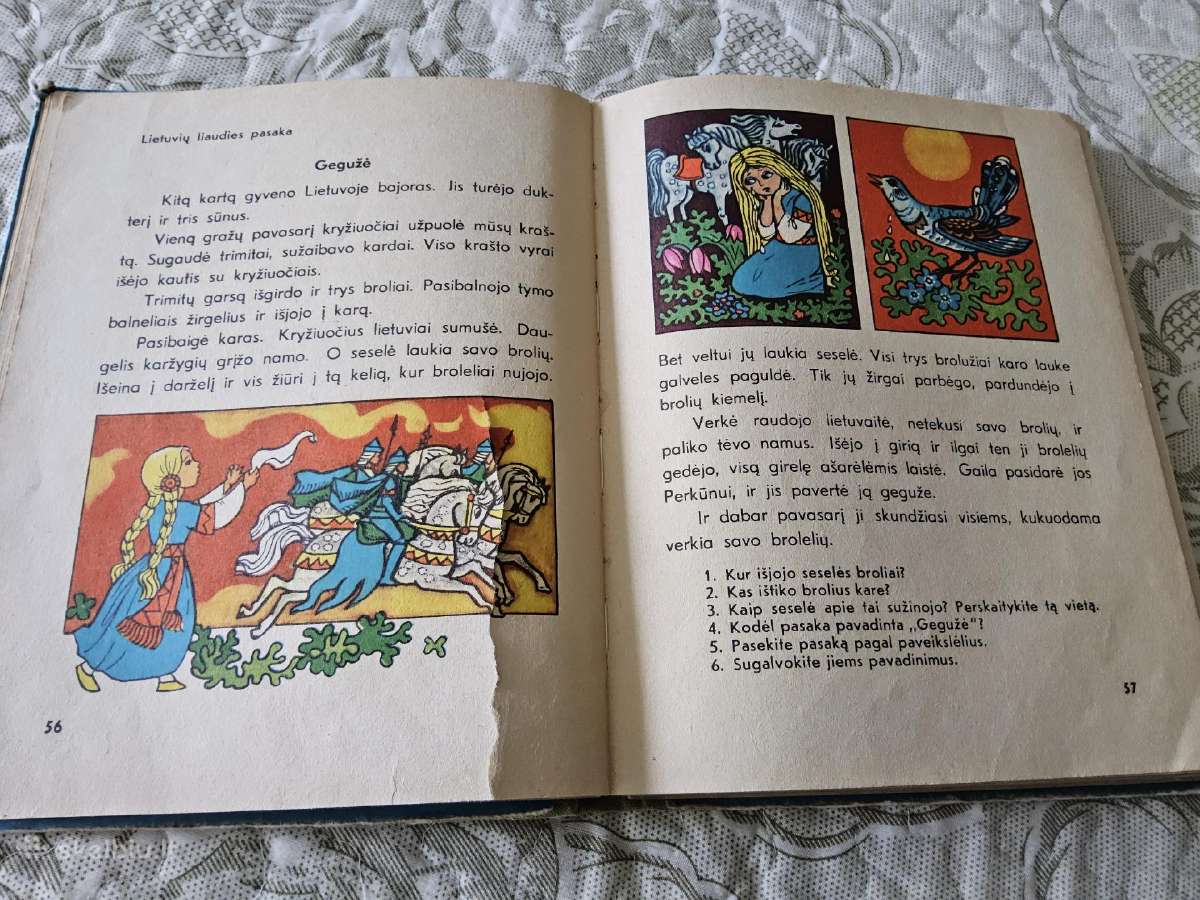 Lietuvių liaudies pasaka
Gegužė
Kitą kartą gyveno Lietuvoje bajoras. Jis turėjo duk-
terį ir tris sūnus.
Vieną gražų pavasarį kryžiuočiai užpuolė mūsų kraš-
tą. Sugaudė trimitai, sužaibavo kardai. Viso krašto vyrai
išėjo kautis su kryžiuočiais.
Trimitų garsą išgirdo ir trys broliai. Pasibalnojo tymo
balneliais žirgelius ir išjojo į karą.
Pasibaigė karas. Kryžiuočius lietuviai sumušė. Dau-
gelis karžygių grįžo namo. O seselė laukia savo brolių.
Išeina į darželį ir vis žiūri į tą kelią, kur broleliai nujojo.
56
Bet veltui jų laukia seselė. Visi trys brolužiai karo lauke
galveles paguldė. Tik jų žirgai parbėgo, pardundėjo į
brolių kiemelį.
Verkė raudojo lietuvaitė, netekusi savo brolių, ir
paliko tėvo namus. Išėjo į girią ir ilgai ten ji brolelių
gedėjo, visą girelę ašarėlėmis laistė. Gaila pasidarė jos
Perkūnui, ir jis pavertė ją geguže.
Ir dabar pavasarį ji skundžiasi visiems, kukuodama
verkia savo brolelių.
1. Kur išjojo seselės broliai?
2. Kas ištiko brolius kare?
3. Kaip seselė apie tai sužinojo? Perskaitykite tą vietą.
4. Kodėl pasaka pavadinta „Gegužė"?
5. Pasekite pasaką pagal paveikslėlius.
6. Sugalvokite jiems pavadinimus.
57
skelbiu.lt